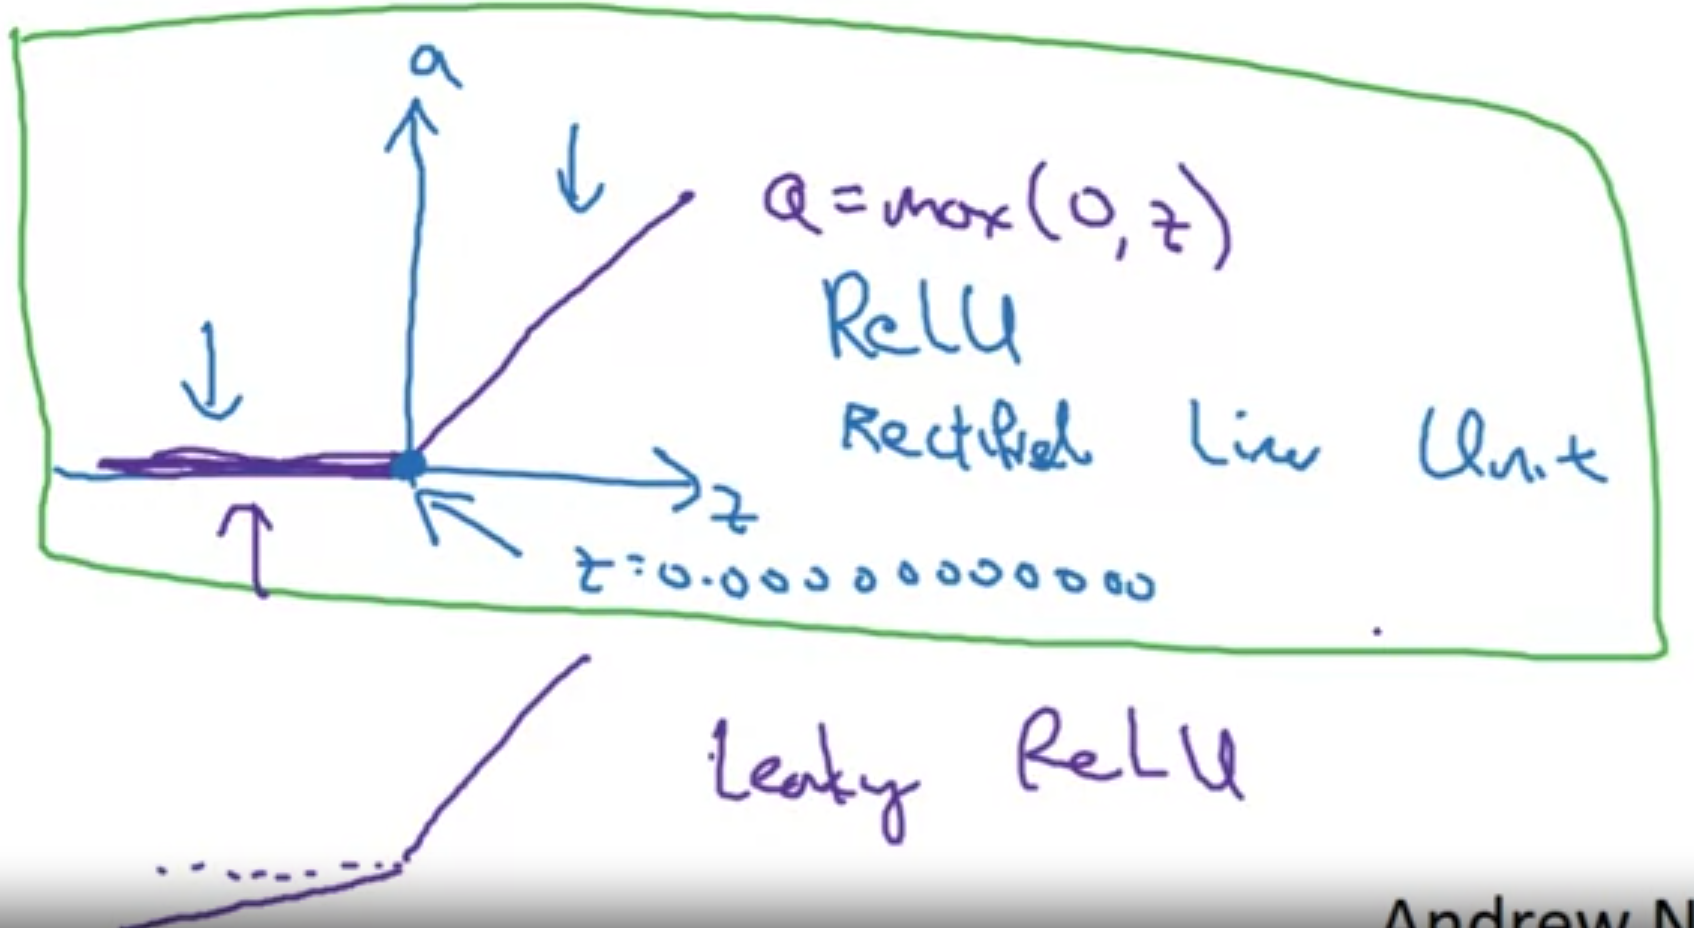 a
a = max(0, z)
ReLU
Rectified Linear Unit
z
z = 0.000000000000
Leaky ReLU
Andrew N